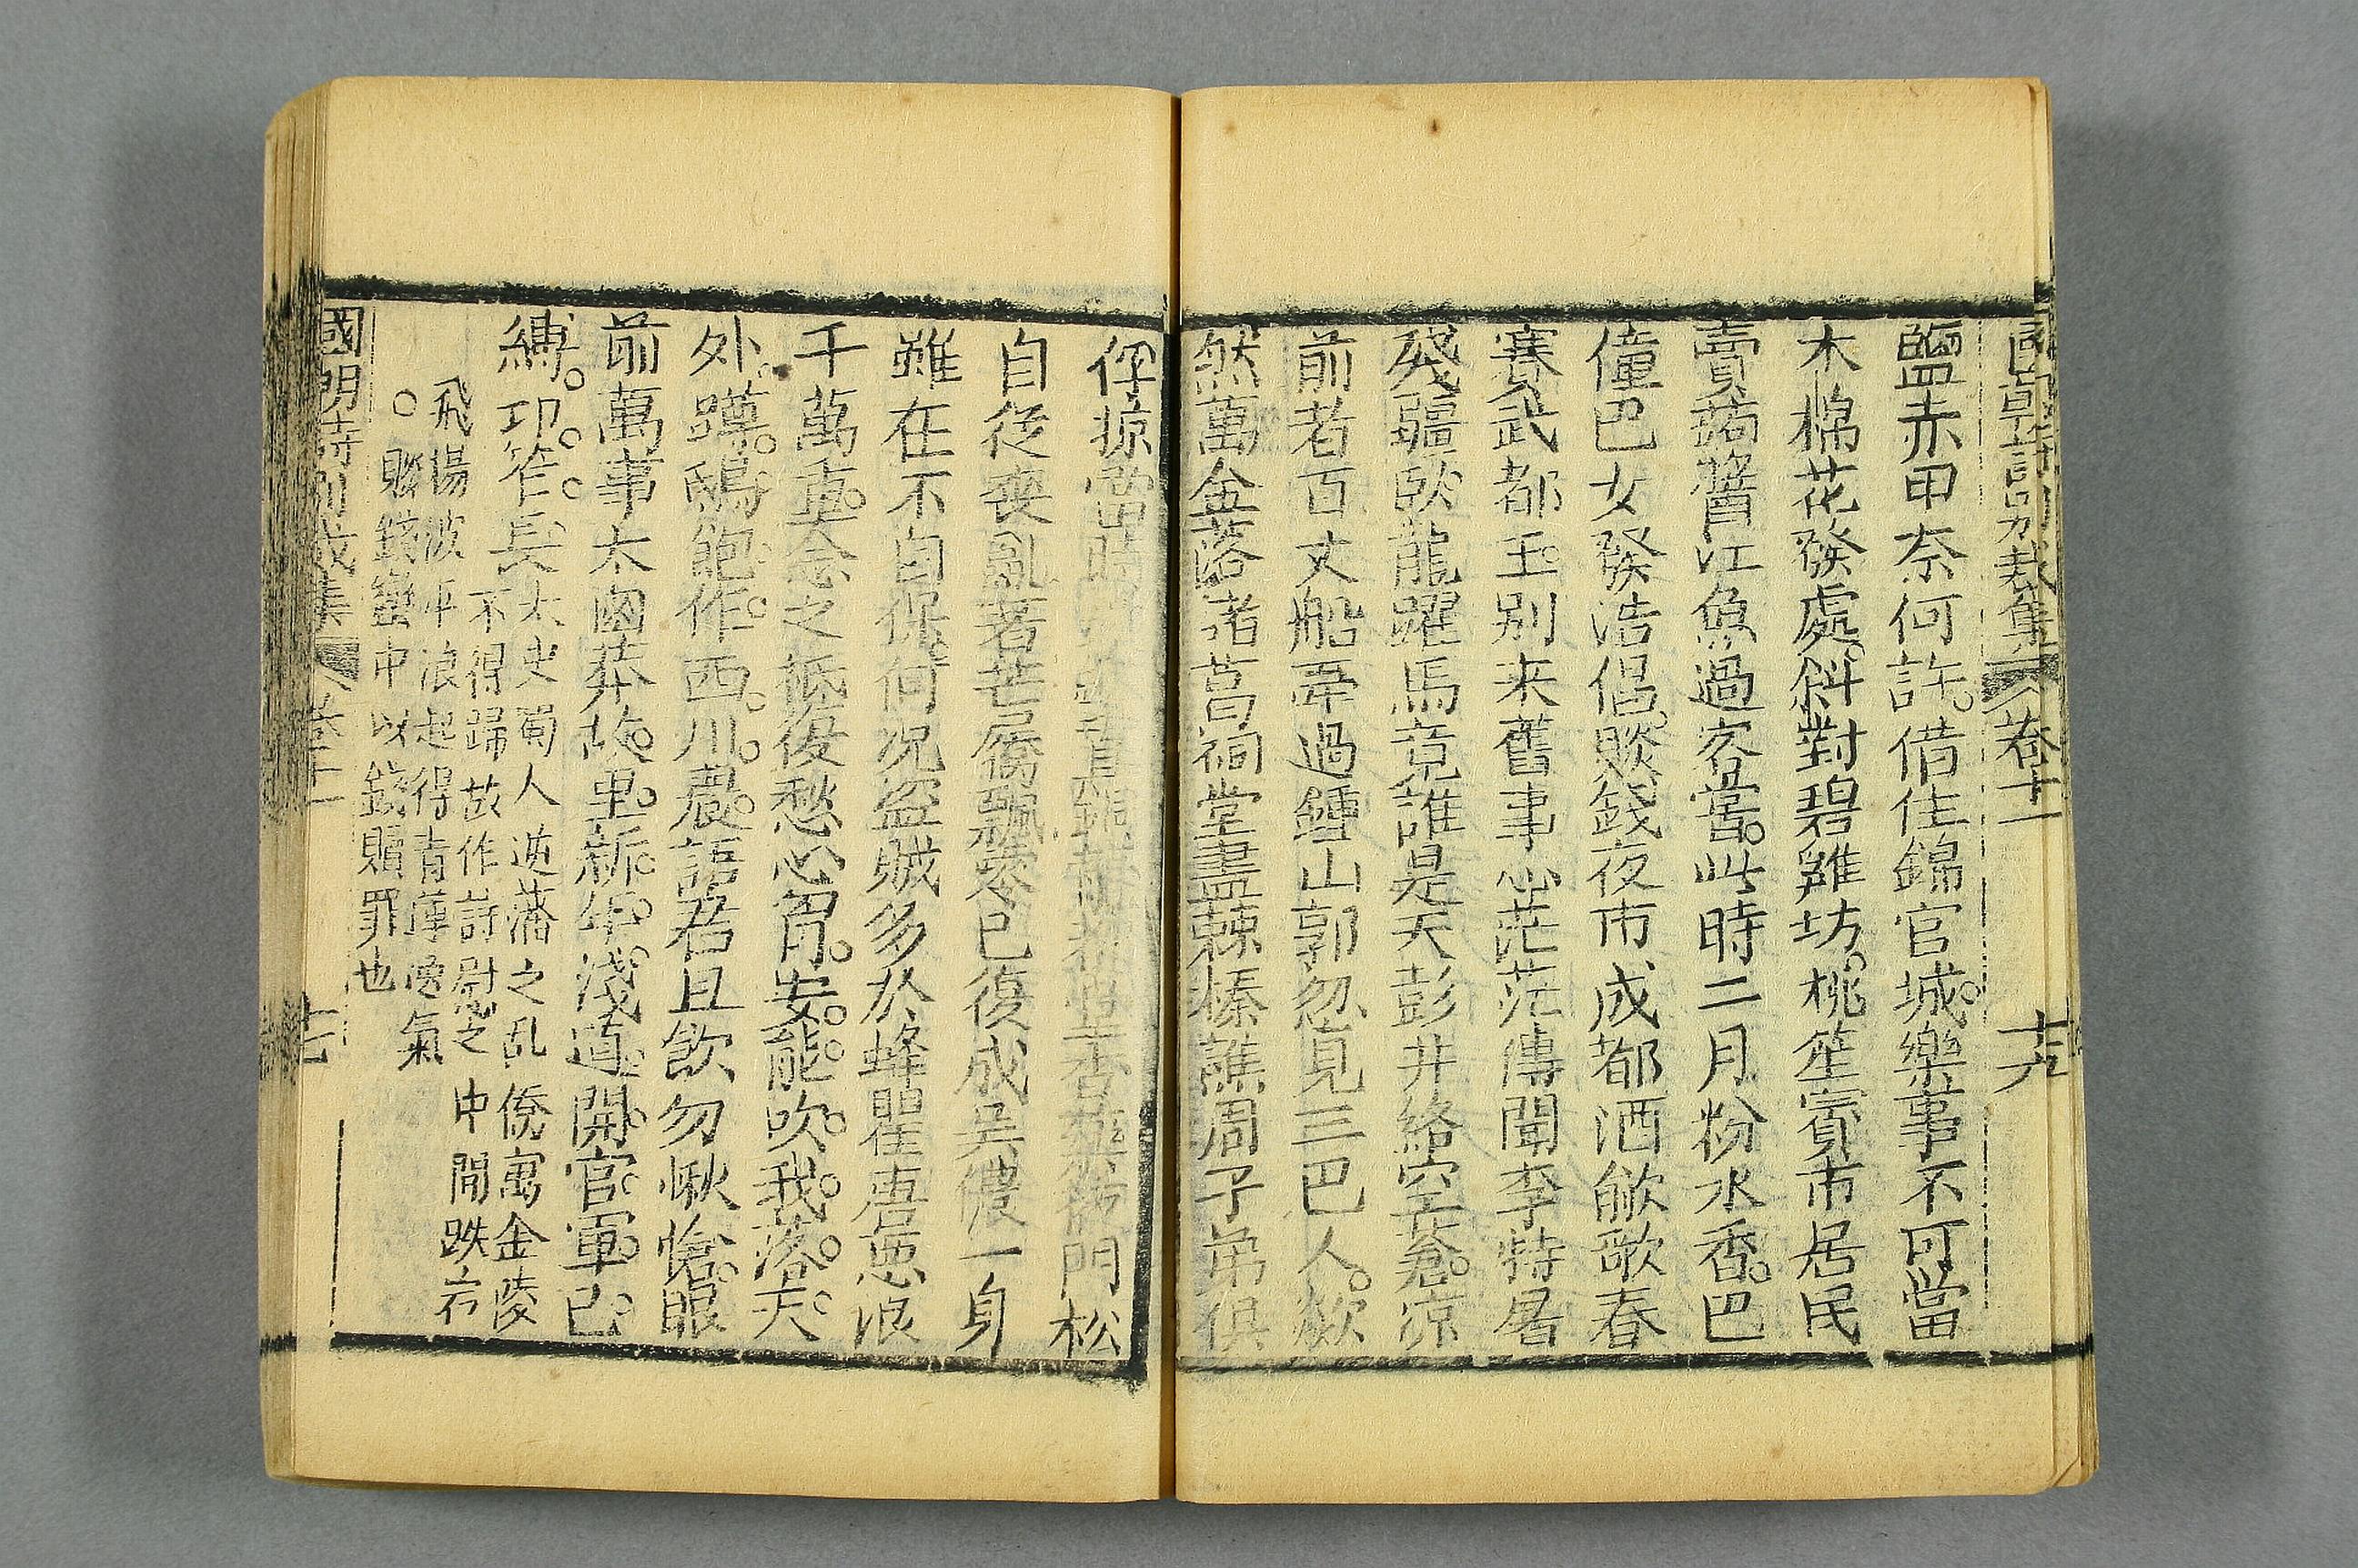 國朝詩別裁集 卷十一 十六
鹽赤甲奈何許借住錦官城樂事不可當
木棉花發處斜對碧雞坊桃笙賨市居民
賣蒟醬江魚過客當此時二月粉水香巴
僮巴女發浩倡賧錢夜市成都酒觎歌春
賽武都王別来舊事心茫茫傳聞李特屠
殘疆臥龍躍馬竟誰是天彭井絡空蒼凉
前者百丈船再過鍾山郭忽見三巴人歘
然萬金落渚萏祠堂盡棘榛譙周子弟俱
俘掠當時
門松
自從喪亂著芒屩飄零已復成吳儂一身
雖在不自保何况盜賊多於蜂瞿唐惡浪
千萬重念之抵復愁心胷安能吹我落天
外蹲鴟飽作西川農語君且飲勿愀愴眼
前萬事太鹵莽故里新年淺道開官軍已
縛卭筰長太史蜀人遊藩之乱僑寓金陵
不得歸故作詩慰之 中間跌宕
飛揚波平浪起得青蓮逸氣
○賧錢蠻中以錢贖罪也
國朝詩別裁集 卷十一 十七